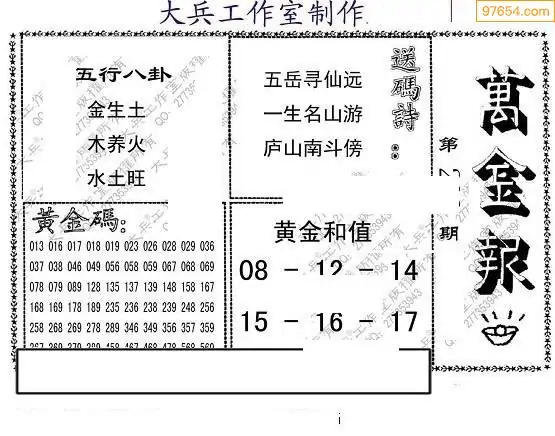 大兵工作室制作
97654.com
五行八卦
金生土
木养火
水土旺
送碼詩:
五岳寻仙远
一生名山游
庐山南斗傍
萬金報
第
期
黄金碼:
013 016 017 018 019 023 026 028 029 036
037 038 046 049 056 058 059 067 068 069
078 079 089 128 135 137 139 148 158 167
168 169 178 189 235 236 238 239 248 256
258 268 269 278 289 346 349 356 357 359
黄金和值
08 - 12 - 14
15 - 16 - 17
i